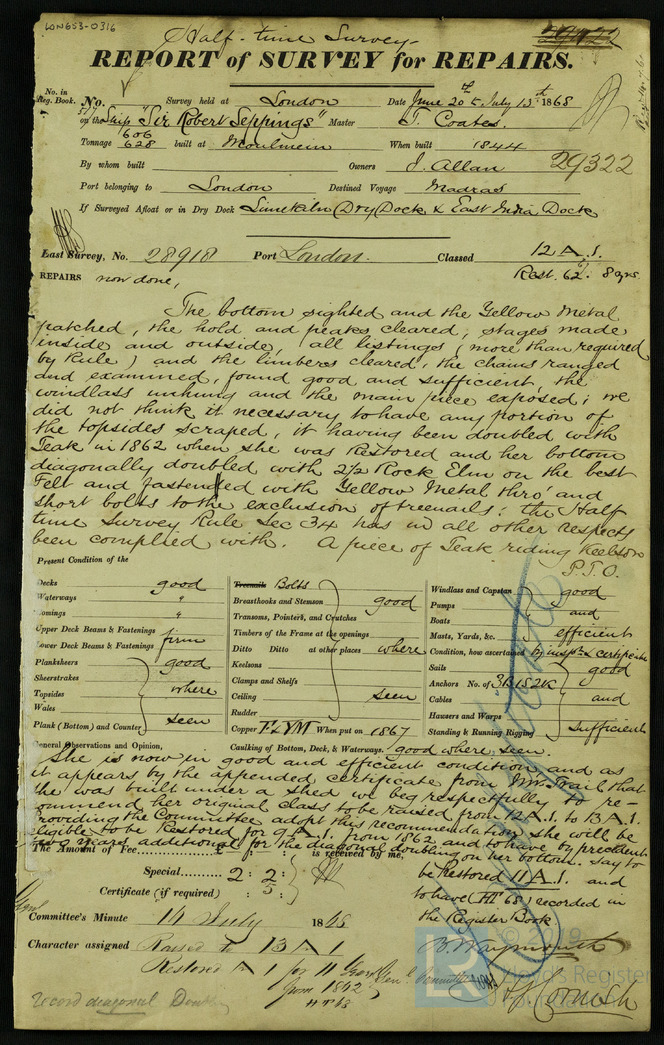 LON653-0316
Half-time Survey-
REPORT of SURVEY for REPAIRS.
No. in Reg. Book.
No. Survey held at London Date June 20th & July 13th 1868
517 on the Ship "Sir Robert Seppings" Master T. Coates.
Tonnage 606 628 built at Moulmein When built 1844
By whom built Owners J. Allan
29322
Port belonging to London Destined Voyage Madras
If Surveyed Afloat or in Dry Dock Limekiln Dry Dock & East India Dock
Last Survey, No. 28918 Port London. Classed 12 A.1.
Rest. 62: 8 yrs.
REPAIRS now done,
The bottom sighted and the Yellow Metal
patched, the hold and peaks cleared, stages made
inside and outside, all listings (more than required
by Rule) and the limbers cleared, the chains ranged
and examined, found good and sufficient, the
windlass unhung and the main piece exposed; we
did not think it necessary to have any portion of
the topsides scraped, it having been doubled with
Teak in 1862 when she was Restored and her bottom
diagonally doubled with 2½ Rock Elm on the best
Felt and fastened with Yellow Metal thro' and
short bolts to the exclusion of treenails: the Half
time Survey Rule Sec 34 has in all other respects
been complied with. A piece of Teak riding Keelson
P.T.O.
Present Condition of the
Decks good
Waterways "
Comings "
Upper Deck Beams & Fastenings firm
Lower Deck Beams & Fastenings
Planksheers good
Sheerstrakes
Topsides where
Wales
Plank (Bottom) and Counter seen
Treenails Bolts
Breasthooks and Stemson good
Transoms, Pointers, and Crutches
Timbers of the Frame at the openings
Ditto Ditto at other places where
Keelsons
Clamps and Shelfs
Ceiling seen
Rudder
Copper F & YM When put on 1867
Caulking of Bottom, Deck, & Waterways. good where seen.
Windlass and Capstan good
Pumps
Boats and
Masts, Yards, &c. efficient
Condition, how ascertained By insptn & certificate
Sails good
Anchors No. of 3B1S2K
Cables and
Hawsers and Warps
Standing & Running Rigging Sufficient
General Observations and Opinion,
She is now in good and efficient condition, and as
it appears by the appended certificate from Mr. Trail that
she was built under a shed we beg respectfully to re-
commend her original class to be raised from 12 A.1. to 13 A.1.
Providing the Committee adopt this recommendation she will be
eligible to be Restored for 9 A.1. from 1862 and to have by precedent
two years additional for the diagonal doubling on her bottom. say to
be restored 11 A.1. and
to have (HT 68) recorded in
the Register Book
The Amount of Fee £ : : is received by me,
Special 2 : 2 :
Certificate (if required) : 5 :
Committee's Minute 14 July 1868
Character assigned Raised to 13 A 1
Restored A 1 for 11 Years
from 1862
HT 68
B. Waymouth
Record diagonal Doubling
© 2019
Lloyd's Register